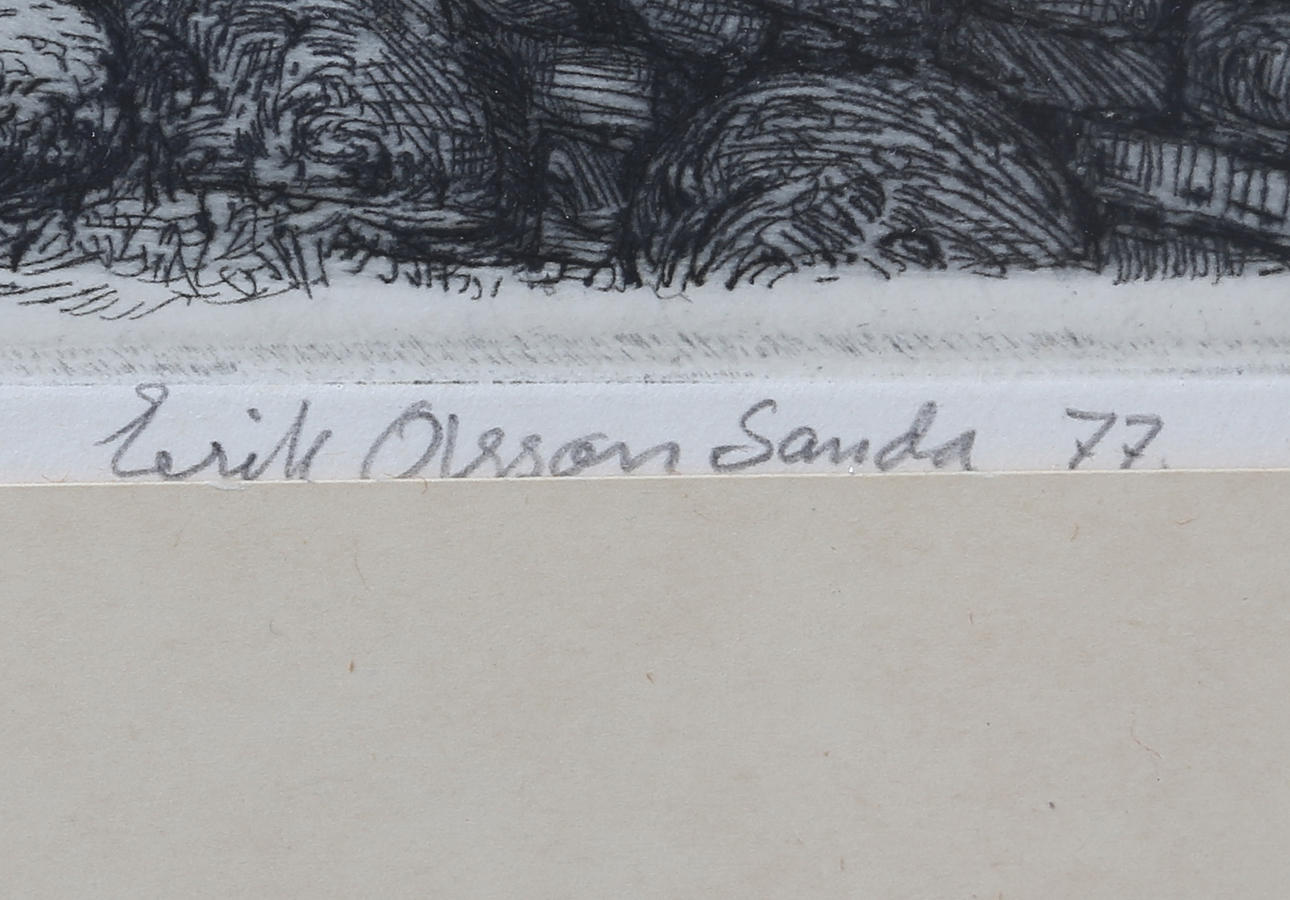 Erik Olsson Sanda 77.